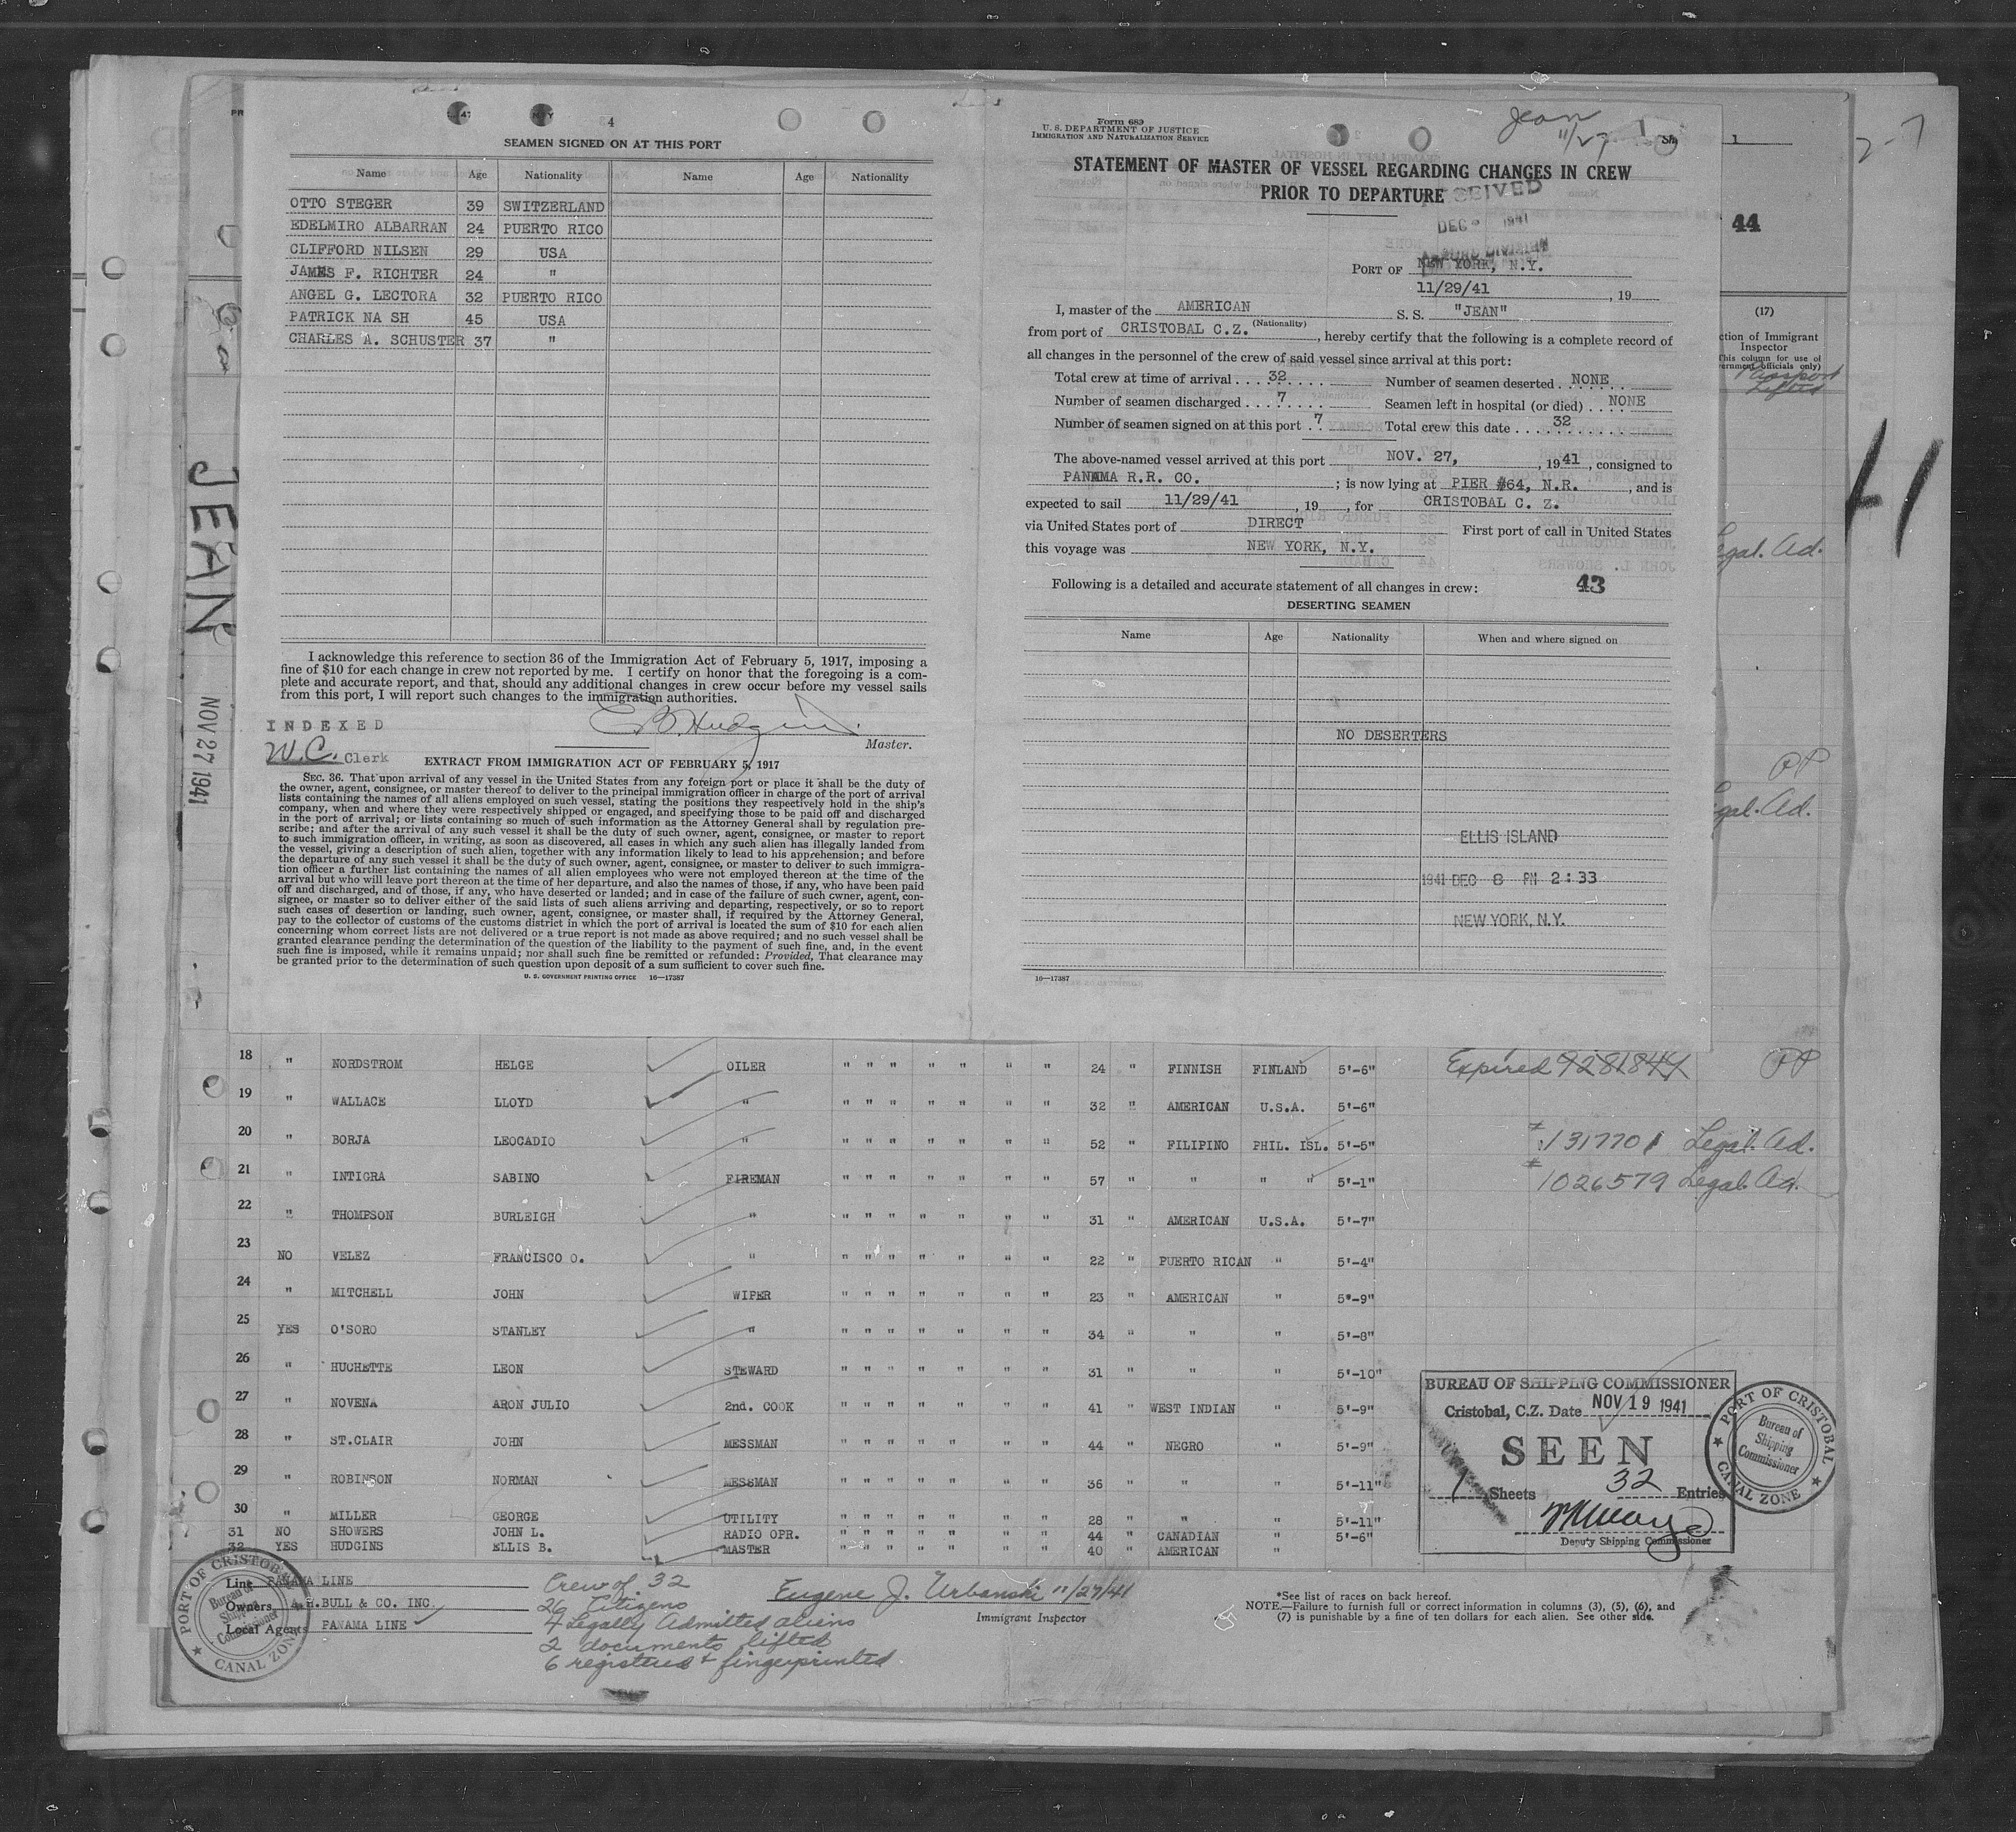 4
SEAMEN SIGNED ON AT THIS PORT
Name Age Nationality Name Age Nationality
OTTO STEGER 39 SWITZERLAND
EDELMIRO ALBARRAN 24 PUERTO RICO
CLIFFORD NILSEN 29 USA
JAMES F. RICHTER 24 "
ANGEL G. LECTORA 32 PUERTO RICO
PATRICK NA SH 45 USA
CHARLES A. SCHUSTER 37 "
I acknowledge this reference to section 36 of the Immigration Act of February 5, 1917, imposing a
fine of $10 for each change in crew not reported by me. I certify on honor that the foregoing is a com-
plete and accurate report, and that, should any additional changes in crew occur before my vessel sails
from this port, I will report such changes to the immigration authorities.
INDEXED
W.C. Clerk
E B. Hudgins
Master.
EXTRACT FROM IMMIGRATION ACT OF FEBRUARY 5, 1917
SEC. 36. That upon arrival of any vessel in the United States from any foreign port or place it shall be the duty of
the owner, agent, consignee, or master thereof to deliver to the principal immigration officer in charge of the port of arrival
lists containing the names of all aliens employed on such vessel, stating the positions they respectively hold in the ship's
company, when and where they were respectively shipped or engaged, and specifying those to be paid off and discharged
in the port of arrival; or lists containing so much of such information as the Attorney General shall by regulation pre-
scribe; and after the arrival of any such vessel it shall be the duty of such owner, agent, consignee, or master to report
to such immigration officer, in writing, as soon as discovered, all cases in which any such alien has illegally landed from
the vessel, giving a description of such alien, together with any information likely to lead to his apprehension; and before
the departure of any such vessel it shall be the duty of such owner, agent, consignee, or master to deliver to such immigra-
tion officer a further list containing the names of all alien employees who were not employed thereon at the time of the
arrival but who will leave port thereon at the time of her departure, and also the names of those, if any, who have been paid
off and discharged, and of those, if any, who have deserted or landed; and in case of the failure of such owner, agent, con-
signee, or master so to deliver either of the said lists of such aliens arriving and departing, respectively, or so to report
such cases of desertion or landing, such owner, agent, consignee, or master shall, if required by the Attorney General,
pay to the collector of customs of the customs district in which the port of arrival is located the sum of $10 for each alien
concerning whom correct lists are not delivered or a true report is not made as above required; and no such vessel shall be
granted clearance pending the determination of the question of the liability to the payment of such fine, and, in the event
such fine is imposed, while it remains unpaid; nor shall such fine be remitted or refunded: Provided, That clearance may
be granted prior to the determination of such question upon deposit of a sum sufficient to cover such fine.
U. S. GOVERNMENT PRINTING OFFICE 16—17387
JEAN
NOV 27 1941
Form 689
U. S. DEPARTMENT OF JUSTICE
IMMIGRATION AND NATURALIZATION SERVICE
Jean
11/27
Sh 1
STATEMENT OF MASTER OF VESSEL REGARDING CHANGES IN CREW
PRIOR TO DEPARTURE
DEC 1941
PORT OF NEW YORK, N.Y.
11/29/41, 19
I, master of the AMERICAN S. S. "JEAN"
(Nationality)
from port of CRISTOBAL C.Z., hereby certify that the following is a complete record of
all changes in the personnel of the crew of said vessel since arrival at this port:
Total crew at time of arrival 32 Number of seamen deserted NONE
Number of seamen discharged 7 Seamen left in hospital (or died) NONE
Number of seamen signed on at this port 7 Total crew this date 32
The above-named vessel arrived at this port NOV. 27, , 1941, consigned to
PANAMA R.R. CO. ; is now lying at PIER #64, N.R. , and is
expected to sail 11/29/41, 19 , for CRISTOBAL C. Z.
via United States port of DIRECT First port of call in United States
this voyage was NEW YORK, N.Y.
Following is a detailed and accurate statement of all changes in crew: 43
DESERTING SEAMEN
Name Age Nationality When and where signed on
NO DESERTERS
ELLIS ISLAND
1941 DEC 8 PM 2:33
NEW YORK, N.Y.
16—17387
44
(17)
ction of Immigrant
Inspector
This column for use of
ernment officials only)
Passport
Lifted
41
egal. Ad.
PP
gal. Ad.
18 " NORDSTROM HELGE OILER " " " " " " " 24 " FINNISH FINLAND 5'-6" Expired 9281844 PP
19 " WALLACE LLOYD " " " " " " " " 32 " AMERICAN U.S.A. 5'-6"
20 " BORJA LEOCADIO " " " " " " " " 52 " FILIPINO PHIL. ISL. 5'-5" #1317701 Legal. Ad.
21 " INTIGRA SABINO FIREMAN " " " " " " " 57 " " " " 5'-1" #1026579 Legal. Ad.
22 " THOMPSON BURLEIGH " " " " " " " " 31 " AMERICAN U.S.A. 5'-7"
23 NO VELEZ FRANCISCO O. " " " " " " " " 22 " PUERTO RICAN " 5'-4"
24 " MITCHELL JOHN WIPER " " " " " " " 23 " AMERICAN " 5'-9"
25 YES O'SORO STANLEY " " " " " " " " 34 " " " 5'-8"
26 " HUCHETTE LEON STEWARD " " " " " " " 31 " " " 5'-10"
27 " NOVENA ARON JULIO 2nd. COOK " " " " " " " 41 " WEST INDIAN " 5'-9"
28 " ST.CLAIR JOHN MESSMAN " " " " " " " 44 " NEGRO " 5'-9"
29 " ROBINSON NORMAN MESSMAN " " " " " " " 36 " " " 5'-11"
30 " MILLER GEORGE UTILITY " " " " " " " 28 " " " 5'-11"
31 NO SHOWERS JOHN L. RADIO OPR. " " " " " " " 44 " CANADIAN " 5'-6"
32 YES HUDGINS ELLIS B. MASTER " " " " " " " 40 " AMERICAN "
BUREAU OF SHIPPING COMMISSIONER
Cristobal, C.Z. Date NOV 19 1941
SEEN
1 Sheets 32 Entries
Deputy Shipping Commissioner
PORT OF CRISTOBAL
Bureau of
Shipping
Commissioner
CANAL ZONE
PORT OF CRISTOBAL
Bureau of
Shipping
Commissioner
CANAL ZONE
Line PANAMA LINE
Owners A.H.BULL & CO. INC.
Local Agents PANAMA LINE
Crew of 32
26 Citizens
4 Legally Admitted aliens
2 documents lifted
6 registered & fingerprinted
Eugene J. Urbanski 11/27/41
Immigrant Inspector
*See list of races on back hereof.
NOTE.—Failure to furnish full or correct information in columns (3), (5), (6), and
(7) is punishable by a fine of ten dollars for each alien. See other side.